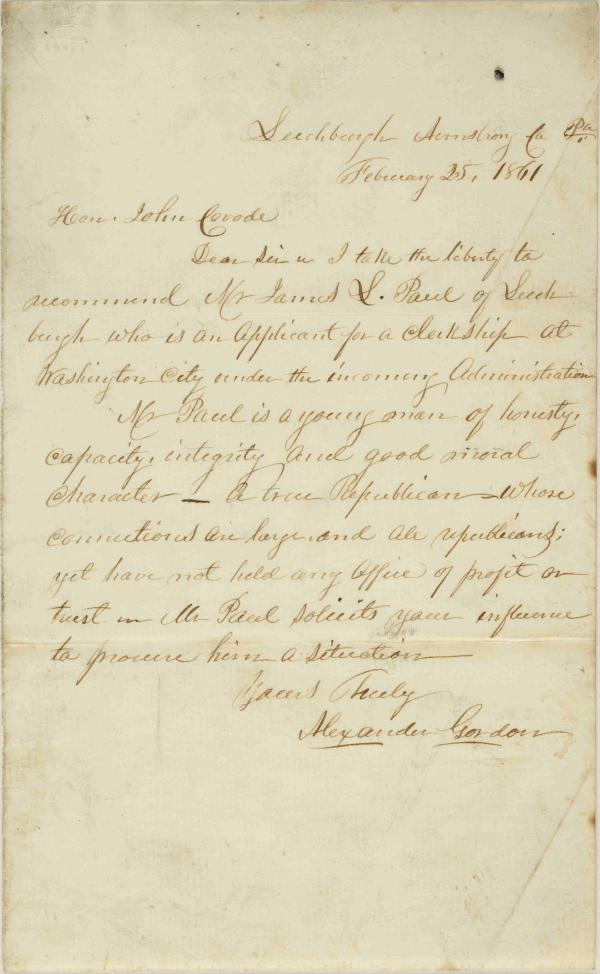 Leechburgh Armstrong Co Pa
February 25, 1861
Hon. John Covode
Dear Sir I take the liberty to
recommend Mr James L. Paul of Leech-
burgh who is an applicant for a Clerkship at
Washington City under the incoming Administration
Mr Paul is a young man of honesty,
capacity, integrity and good moral
character – a true Republican – whose
connections are large and all republicans;
yet have not held any Office of profit or
trust Mr Paul solicits your influence
to procure him a situation
Yours Truly
Alexander Gordon